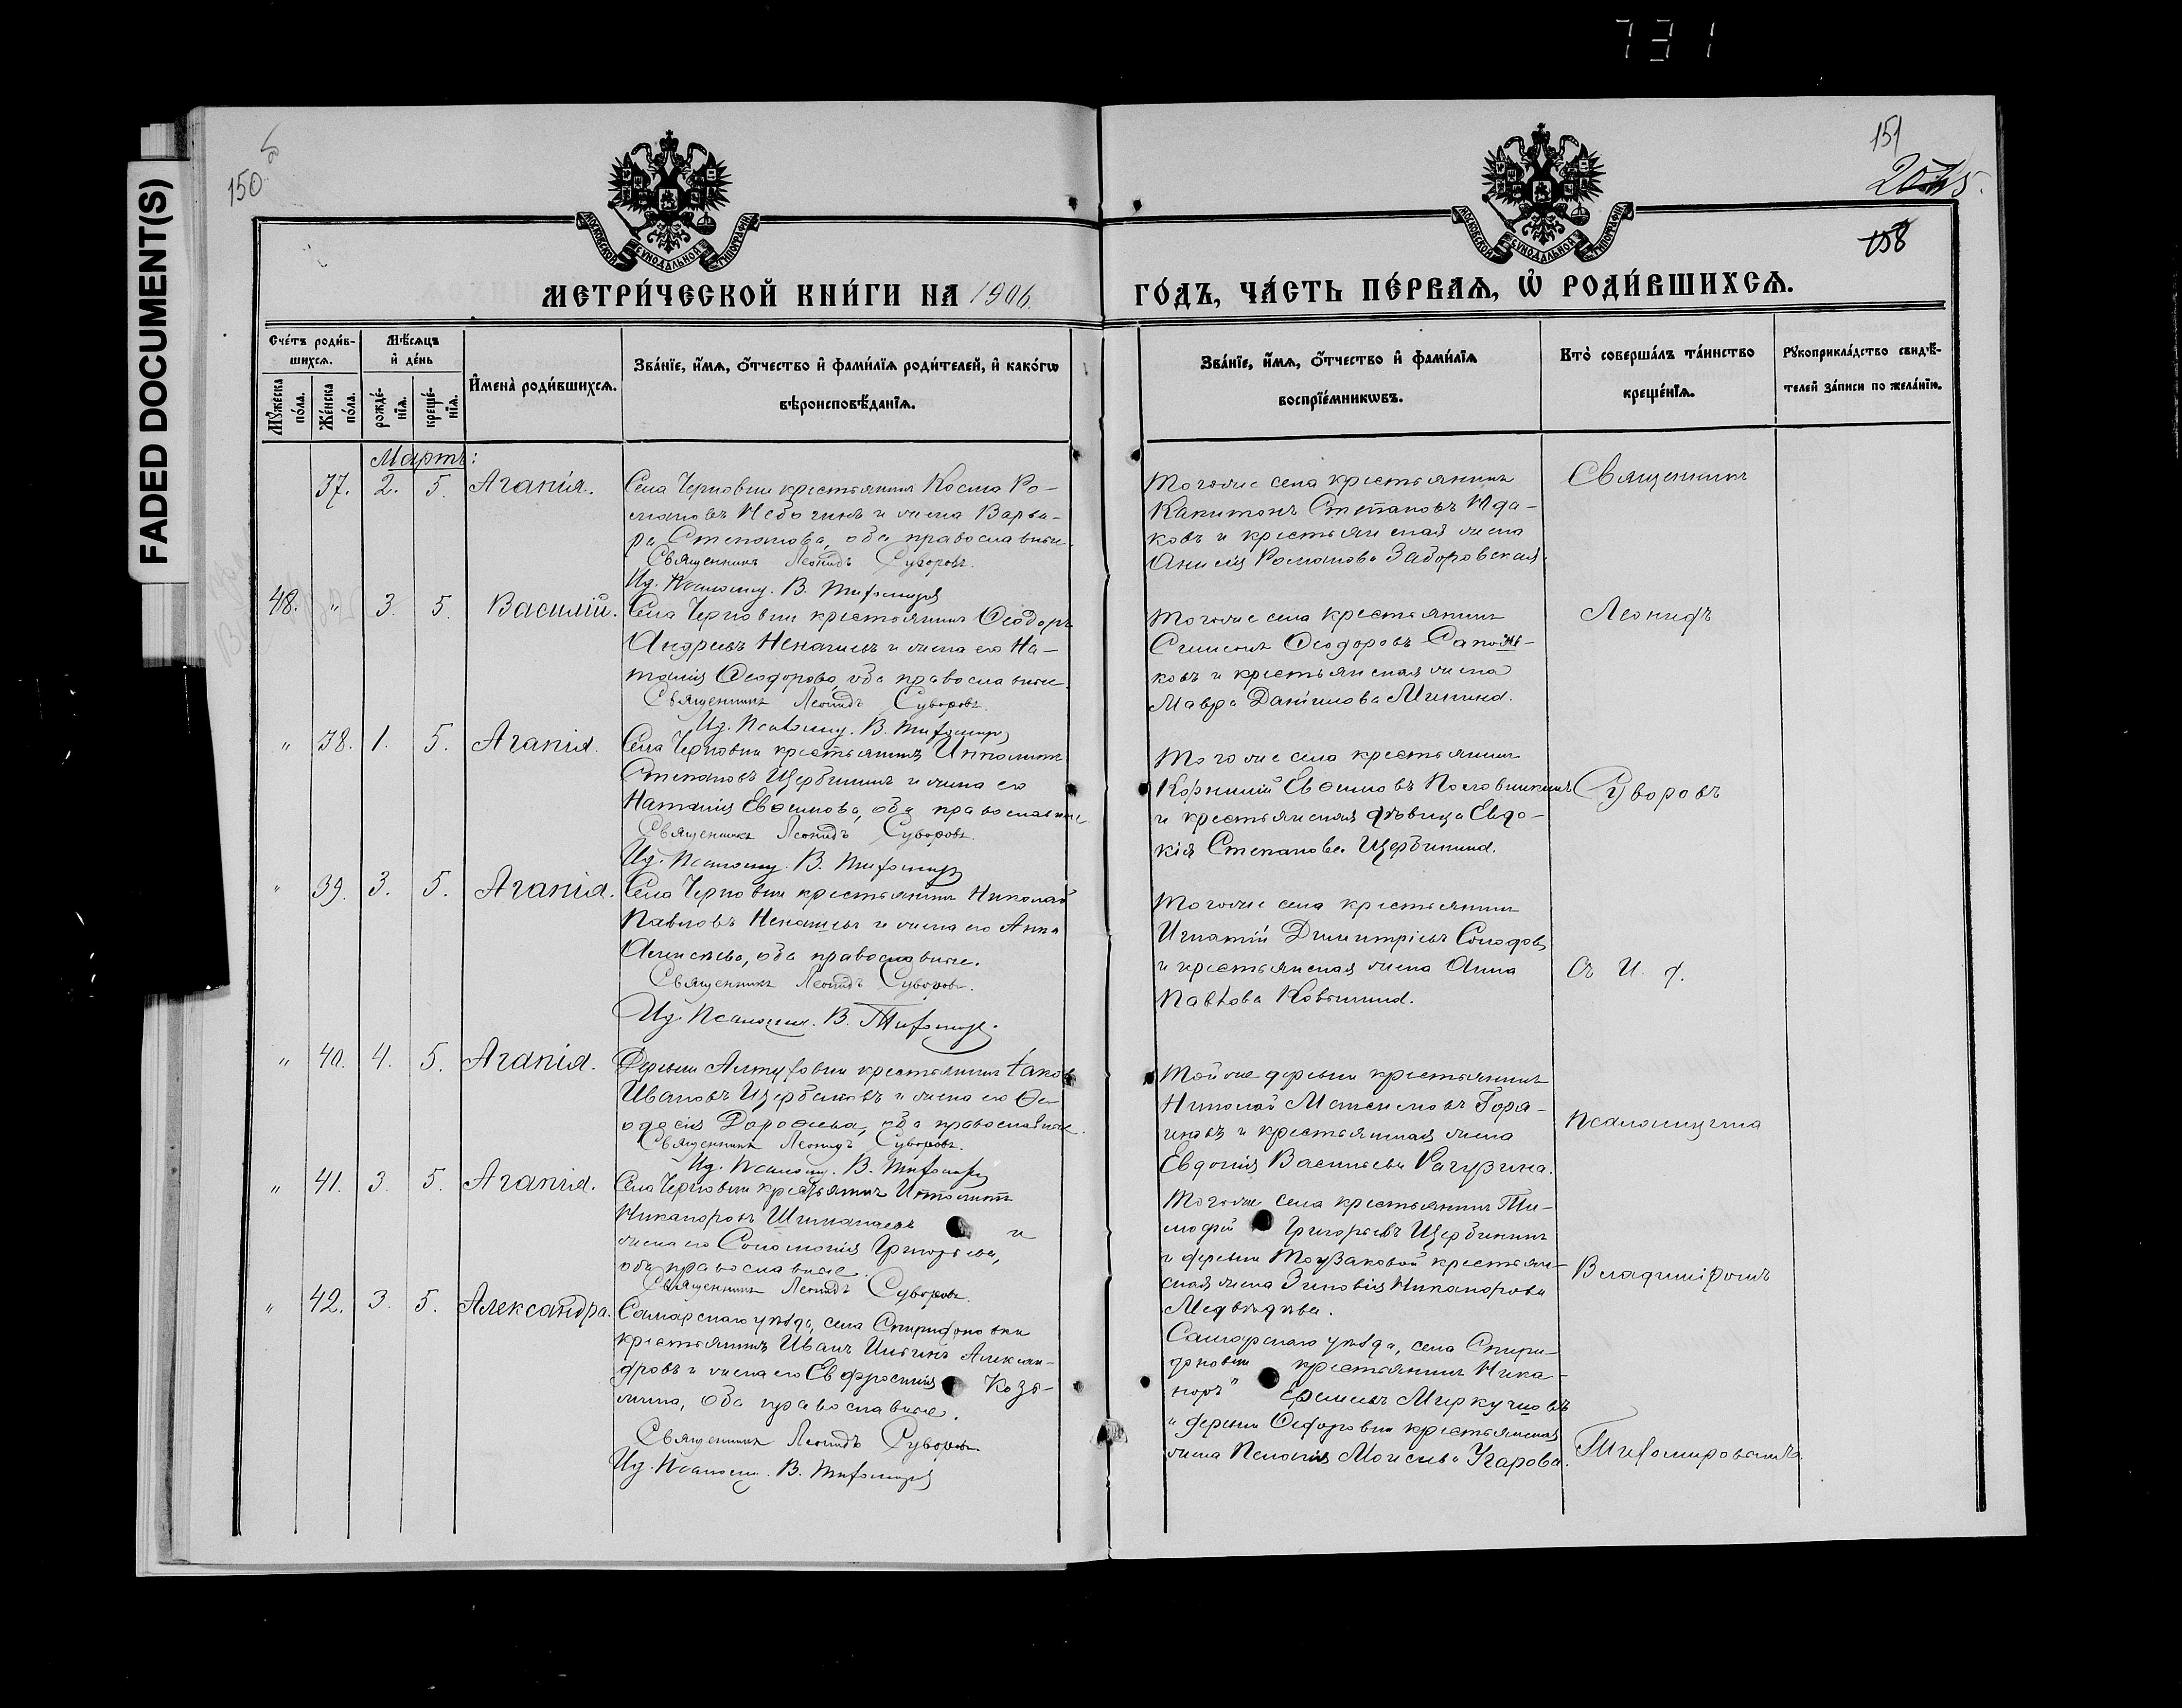 731
FADED DOCUMENT(S)
150
151
158
МЕТРИ́ЧЕСКОЙ КНИ́ГИ НА 1906.
ГО́ДЪ, ЧА́СТЬ ПЕ́РВАѦ, Ѡ РОДИ́ВШИХСѦ.
МОСКОВСКОЙ СѴНОДАЛЬНОЙ ТИПОГРАФІИ
МОСКОВСКОЙ СѴНОДАЛЬНОЙ ТИПОГРАФІИ
Сче́тъ роди́в-
шихсѧ.
Мꙋ́жеска по́ла.
Же́нска по́ла.
Мѣ́сѧцъ
и де́нь
рожде́-нїѧ.
креще́-нїѧ.
Имена̀ роди́вшихсѧ.
Зва́нїе, и́мѧ, о́тчество и фами́лїѧ роди́телей, и како́гѡ
вѣроисповѣ́данїѧ.
Зва́нїе, и́мѧ, о́тчество и фами́лїѧ
воспрїе́мникѡвъ.
Кто̀ соверша́лъ та́инство
креще́нїѧ.
Рꙋкоприкла́дство свидѣ́-
телей за́писи по жела́нїю.
Мартъ:
37. 2. 5. Агапія.
Села Черновки крестьянинъ Косма Ро-
мановъ Небогинъ и жена Варва-
ра Степанова, оба православные.
Священникъ Леонидъ Суворовъ.
Ид. Псаломщ. В. Тихомиров
Тогоже села крестьянинъ
Капитонъ Степановъ Ида-
ковъ и крестьянская жена
Анисія Романова Заборовская.
Священникъ
48. " 3. 5. Василій.
Села Черновки крестьянинъ Ѳеодоръ
Андреевъ Ненашевъ и жена его На-
талія Ѳеодорова, оба православные.
Священникъ Леонидъ Суворовъ.
Ид. Псаломщ. В. Тихомиров
Тогоже села крестьянинъ
Симеонъ Ѳеодоровъ Сапож-
ковъ и крестьянская жена
Мавра Даніилова Минина.
Леонидъ
" 38. 1. 5. Агапія.
Села Черновки крестьянинъ Ипполитъ
Степановъ Щербининъ и жена его
Наталія Евѳимова, оба православные
Священникъ Леонидъ Суворовъ.
Ид. Псаломщ. В. Тихомиров
Тогоже села крестьянинъ
Корнилій Евѳимовъ Половинкинъ
и крестьянская дѣвица Евдо-
кія Степанова Щербинина.
Суворовъ
" 39. 3. 5. Агапія.
Села Черновки крестьянинъ Николай
Павловъ Ненашевъ и жена его Анна
Алексѣева, оба православные.
Священникъ Леонидъ Суворовъ.
Ид. Псаломщ. В. Тихомиров.
Тогоже села крестьянинъ
Игнатій Димитріевъ Солодов
и крестьянская жена Анна
Павлова Ковылина.
Съ И. д.
" 40. 4. 5. Агапія.
Деревни Алтуховки крестьянинъ Іаковъ
Ивановъ Щербаковъ и жена его Ѳе-
одосія Дороѳеева, оба православные.
Священникъ Леонидъ Суворовъ.
Ид. Псаломщ. В. Тихомиров
Тойже деревни крестьянинъ
Николай Матвеевъ Горя-
иновъ и крестьянская жена
Евдокія Васильева Рагузина.
Псаломщика
" 41. 3. 5. Агапія.
Села Черновки крестьянинъ Ипполитъ
Никаноровъ Шишканаевъ и
жена его Соломонія Григорьева,
оба православные.
Священникъ Леонидъ Суворовъ.
Тогоже села крестьянинъ Ти-
моѳей Григорьевъ Щербининъ
и деревни Тоузаковой крестьян-
ская жена Зиновія Никанорова
Медвѣдева.
Владиміромъ
" 42. 3. 5. Александра.
Самарскаго уѣзда, села Спиридоновки
крестьянинъ Иванъ Ильинъ Алексан-
дровъ и жена его Евфросинія Козь-
мина, оба православные.
Священникъ Леонидъ Суворовъ
Ид. Псаломщ. В. Тихомиров
Самарскаго уѣзда, села Спири-
доновки крестьянинъ Ника-
норъ Ермиевъ Меркуловъ
и деревни Ѳедоровки крестьянская
жена Пелагія Моисеева Угарова.
Тихомировымъ.